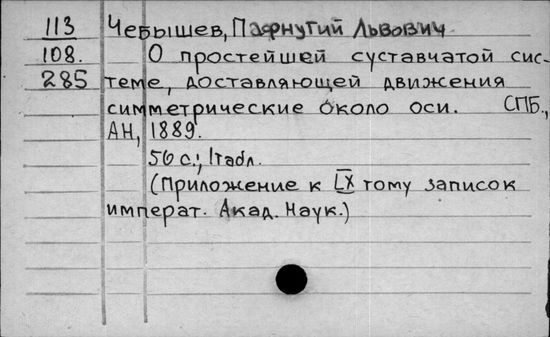 113 Чебышев, Пафнутий Львович
108. О простейшей суставчатой сис-
285 теме, доставляющей движения
симметрические около оси. СПБ.,
АН, 1889.
56 с.; 1 табл.
(Приложение к LX тому записок
императ. Акад. Наук.)